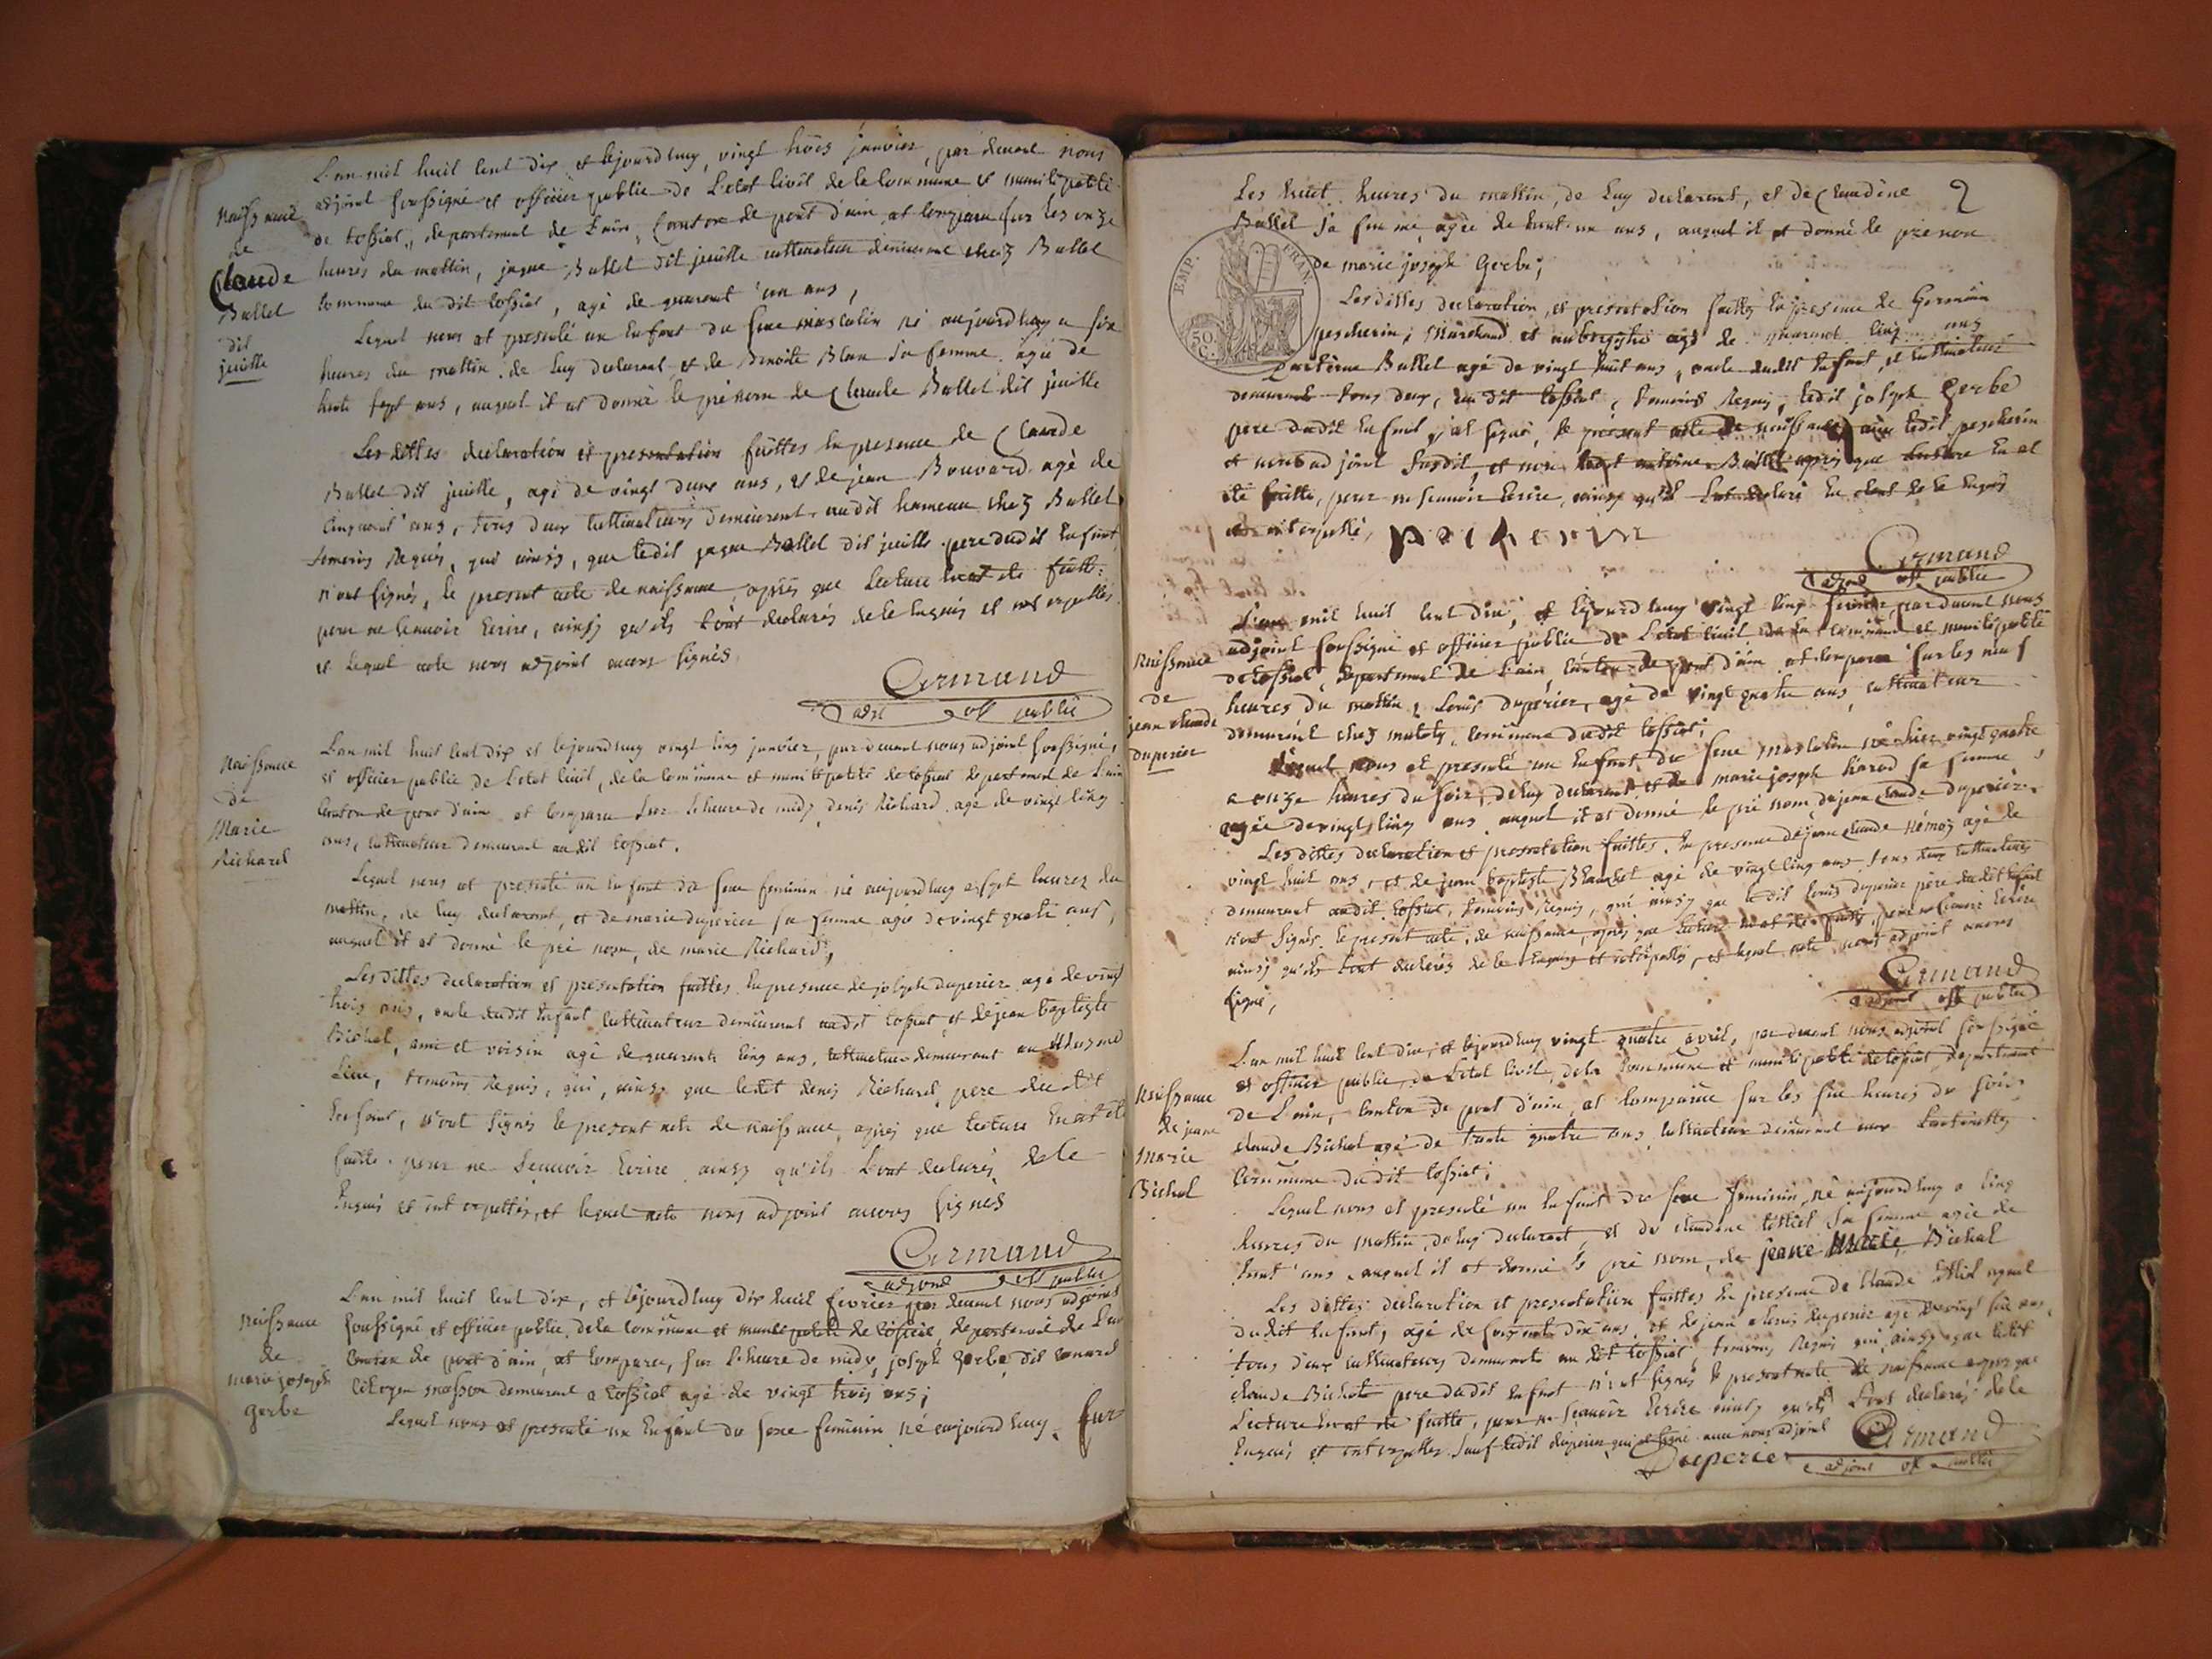 L'an mil huit cent dix et lejourdhuy, vingt trois janvier, par devant nous
adjoint soussigné et officier public de L'etat Civil de la Commune et municipalité
de tossiat, departement de L'ain, Canton de pont d'ain, at comparu sur les onze
heures du mattin, jaque Ballet dit jeuille cultivateur demeurant chez Ballet
commune du dit tossiat, agé de quarant'un ans,
Naissance
de
Claude
Ballet
dit
jeuille
Lequel nous at presenté un Enfant du sexe masculin né aujourdhuy a six
heures du mattin, de luy declarant et de Benoite Blanc sa femme agée de
trente sept ans, auquel il at donné le prénom de Claude Ballet dit jeuille
Lesdittes declaration et presentation faittes En presence de Claude
Ballet dit jeuille, agé de vingt deux ans, et de jean Bouvard agé de
cinquant'ans, tous deux cultivateurs demeurant audit hameau chez Ballet
temoins Requis, qui ainsy, que ledit jaque Ballet dit jeuille pere dudit Enfant
n'ont signés, le present acte de naissance, après que Lecture En at été faitte
pour ne scavoir Ecrire, ainsy qu'ils L'ont declarés de le Enquis et interpellés
et Lequel acte nous adjoint avons signés
Armand
adjt off public
Naissance
de
Marie
Richard
L'an mil huit cent dix et lejourdhuy vingt cinq janvier, par devant nous adjoint soussigné,
et officier public de L'etat Civil, de la commune et municipalité de tossiat departement de L'ain
Canton de pont d'ain at comparu sur L'heure de midy denis Richard agé de vingt cinq
ans, cultivateur demeurant au dit tossiat.
Lequel nous at presenté un Enfant du sexe feminin né aujourdhuy a sept heures du
mattin, de luy declarant, et de marie duperier sa femme agée de vingt quatre ans,
auquel il at donné le pré nom, de marie Richard,
Lesdittes declaration et presentation faittes En presence de joseph duperier agé de vingt
trois ans, oncle dudit Enfant cultivateur demeurant audit tossiat, et de jean baptiste
Bichat, ami et voisin agé de quarante cinq ans, cultivateur demeurant au Mesme
Lieu, temoins Requis, qui, ainsy que ledit denis Richard, pere du dit
Enfant, n'ont signés le present acte de naissance, après que Lecture En at été
faitte. pour ne Scavoir Ecrire ainsy qu'ils L'ont declarés, de le
Enquis et interpellés, et lequel acte nous adjoint avons signés
Armand
adjoint off public
Naissance
de
marie joseph
gerbe
L'an mil huit cent dix, et lejourdhuy dix huit fevrier par devant nous adjoint
soussigné et officier public de la commune et municipalité de tossiat, departement de L'ain
Canton de pont d'ain, at comparu, sur L'heure de midy, joseph gerbe dit
masson demeurant a tossiat agé de vingt trois ans;
Lequel nous at presenté un Enfant du sexe feminin né aujourdhuy, sur
2
Les huit heures du mattin, de Luy declarant, et de Claudine
Ballet sa femme, agée de trent'un ans, auquel il at donné le prénom
de marie joseph Gerbe;
EMP. FRAN.
50 C.
Lesdittes declaration, et presentation faittes En presence de Germain
pescherin, Marchand et aubergiste agé de quarant cinq ans
antoine Ballet agé de vingt huit ans, oncle dudit Enfant, et Cultivateur
demeurant tous deux, au dit tossiat, temoins Requis, ledit joseph Gerbe
pere dudit Enfant, at signé, le present acte de naissance avec ledit pescherin
et nous adjoint susdit, et non ledit antoine Ballet après que Lecture En at
été faitte, pour ne scavoir Ecrire, ainsy qu'il L'at declaré de le Enquis
et interpellé,
pecherin
Armand
adjoint off public
Naissance
de
jean claude
duperier
L'an mil huit cent dix, et lejourdhuy vingt cinq fevrier, par devant nous
adjoint soussigné et officier public de L'etat Civil de la commune et municipalité
de tossiat, departement de L'ain, canton de pont d'ain at comparu sur les neuf
heures du mattin, Louis duperier, agé de vingt quatre ans, cultivateur
demeurant chez commune dudit tossiat;
Lequel nous at presenté un Enfant du sexe masculin né hier vingt quatre
a onze heures du soir, de luy declarant et de marie joseph sa femme
agée de vingt cinq ans auquel il at donné le pré nom, de jean claude duperier.
Lesdittes declaration et presentation faittes. En presence de jean claude Némoz agé de
vingt huit ans, et de jean baptiste Blanchet agé de vingt cinq ans tous deux cultivateurs
demeurant audit tossiat, temoins Requis, qui ainsy que ledit Louis duperier pere dudit Enfant
n'ont signés le present acte, de naissance, après que Lecture En at été faitte, pour ne scavoir Ecrire
ainsy qu'ils L'ont declarés de le Enquis et interpellés, et lequel acte nous adjoint avons
signé,
Armand
adjoint off public
Naissance
de jeane
Marie
Bichat
L'an mil huit cent dix, et lejourdhuy vingt quatre avril, par devant nous adjoint soussigné
et officier public, de L'etat Civil, de la Commune et municipalité de tossiat, departement
de L'ain, Canton de pont d'ain, at comparu sur les six heures du soir
claude Bichat agé de trente quatre ans, cultivateur demeurant aux
Commune du dit tossiat;
Lequel nous at presenté un Enfant du sexe feminin, né aujourdhuy a cinq
heures du mattin, de luy declarant, et de claudine sa femme agée de
trent'ans auquel il at donné le pré nom, de jeane Marie Bichat
Les dittes declaration et presentation faittes En presence de Claude
dudit Enfant, agé de soixante dix ans, et de jean duperier agé de vingt six ans,
tous deux cultivateurs demeurants au dit tossiat, temoins Requis qui, ainsy que ledit
claude Bichat pere dudit Enfant n'ont signés le present acte de naissance après que
Lecture En at été faitte, pour ne scavoir Ecrire ainsy qu'ils L'ont declarés de le
Enquis et interpellés Sauf ledit duperier qui at signé avec nous adjoint
Duperier
Armand
adjoint off public